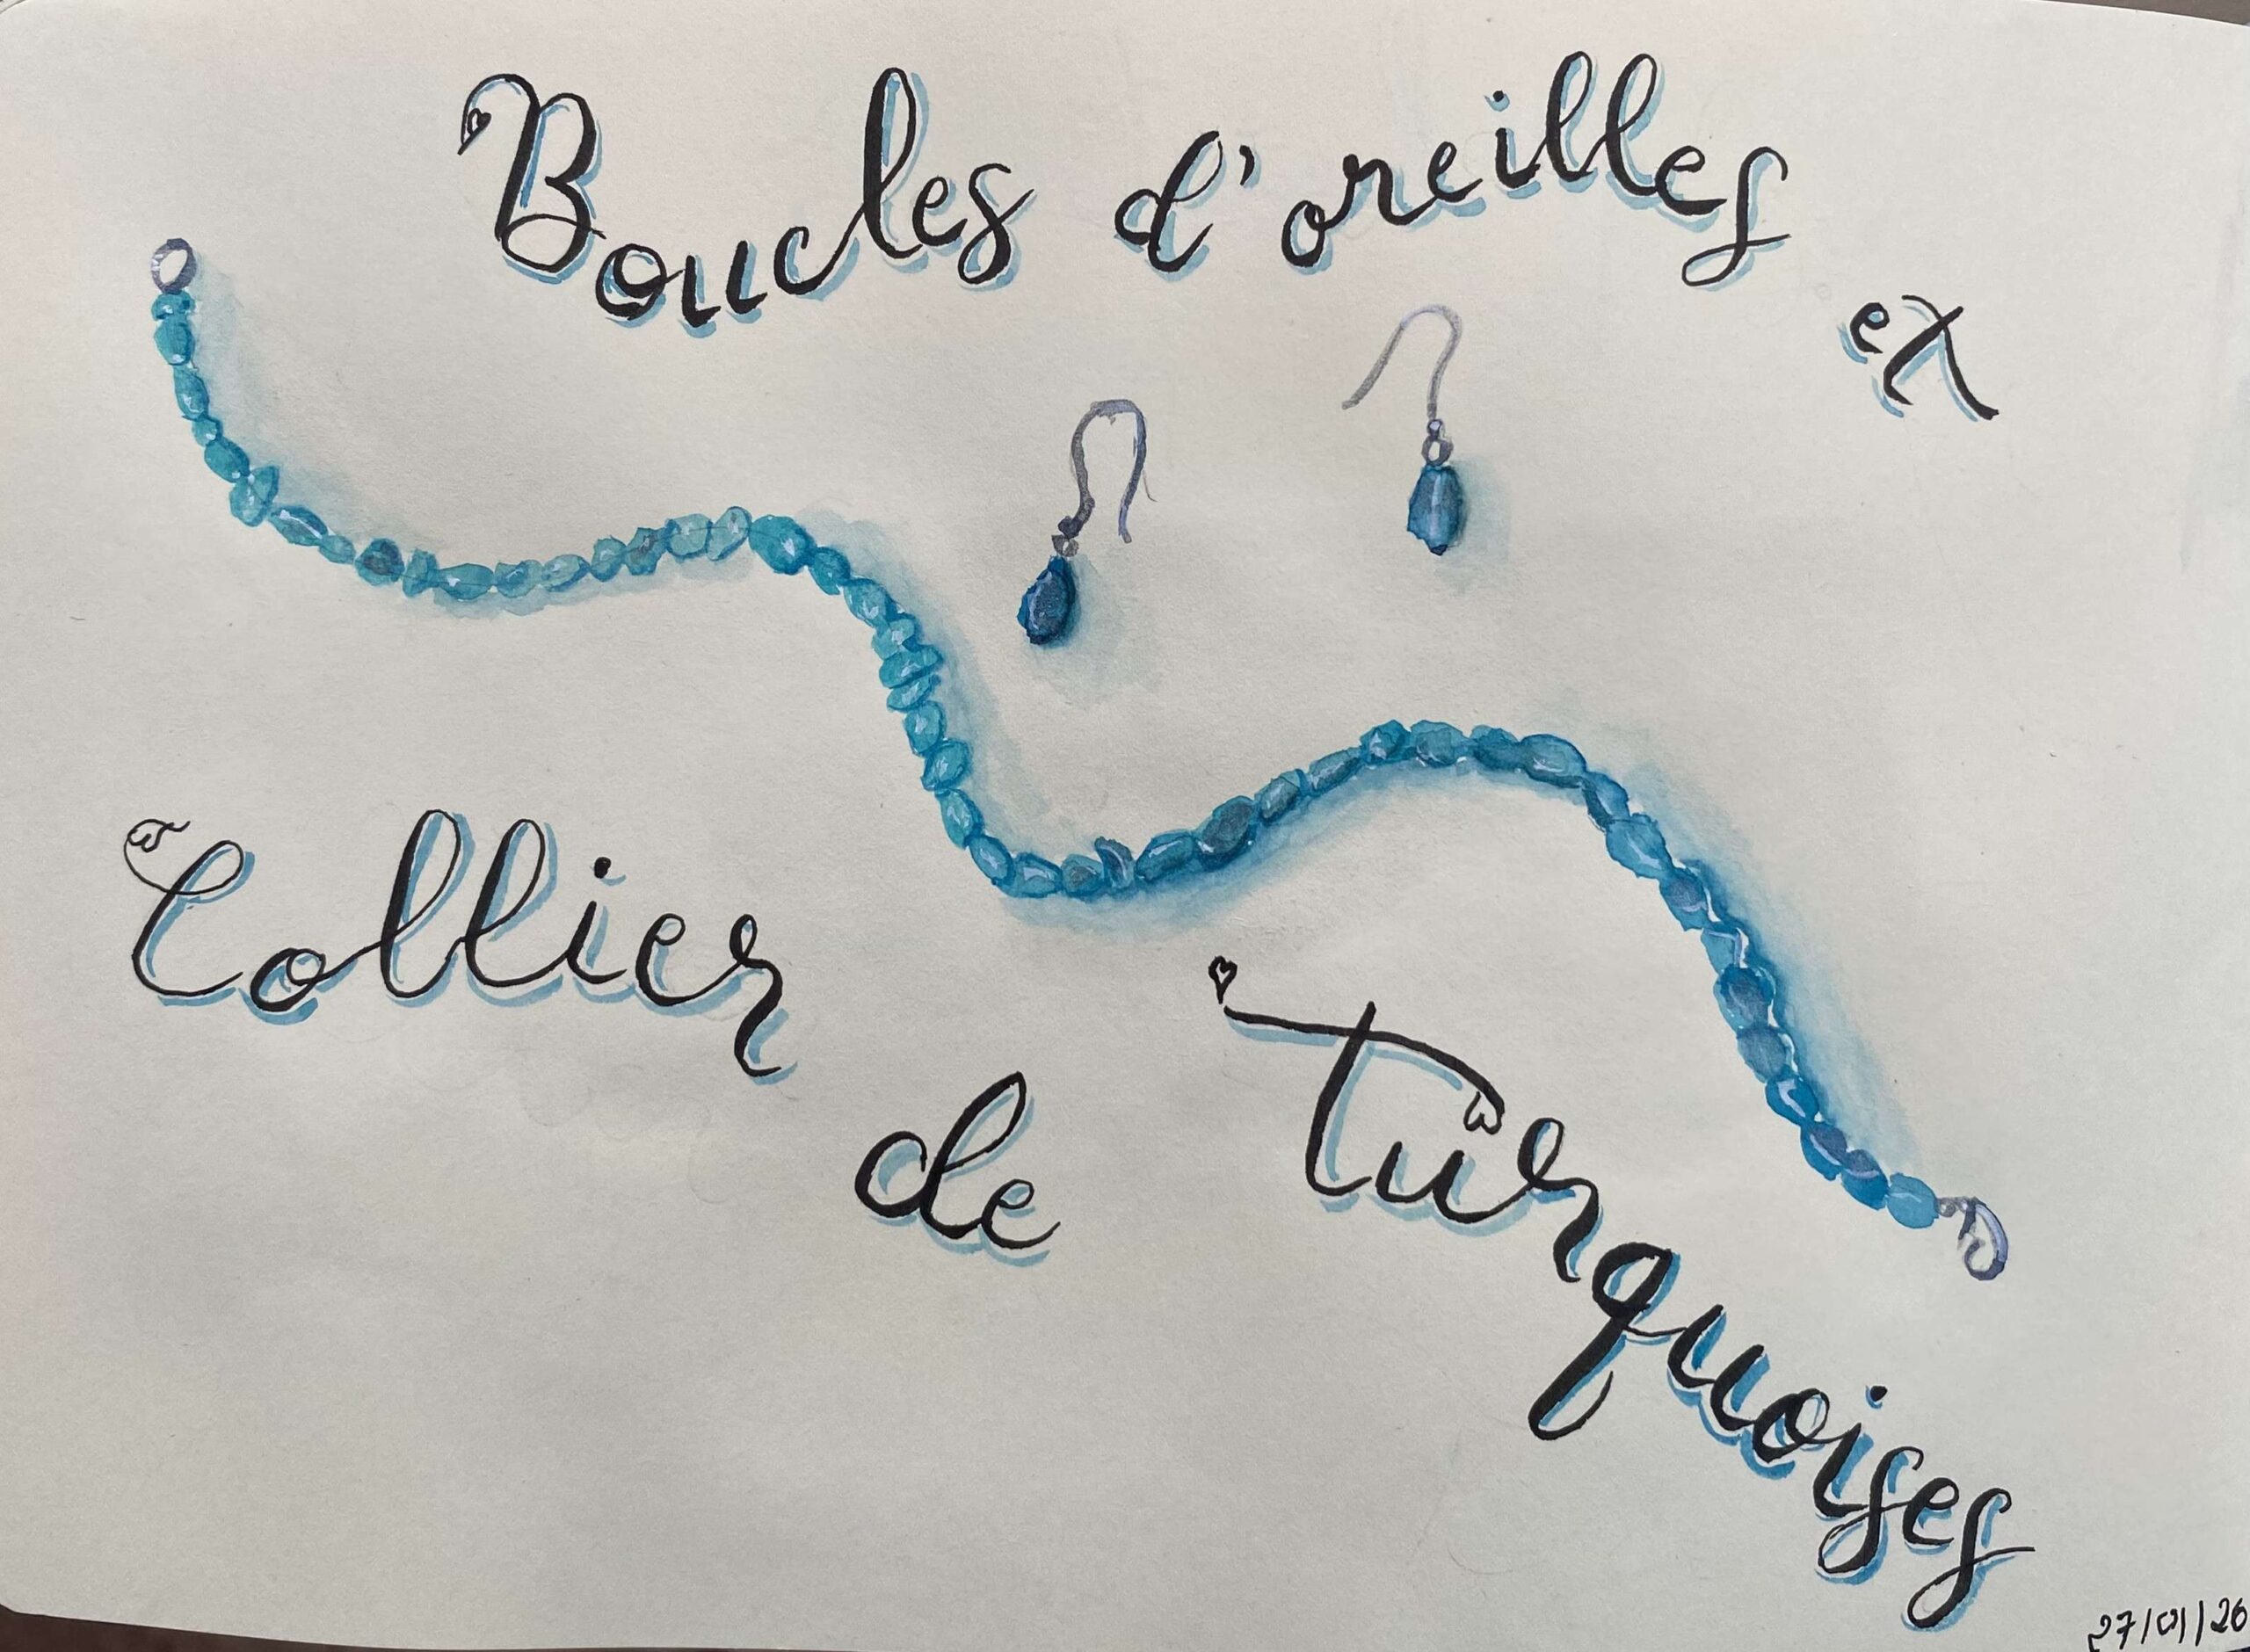 Boucles d'oreilles et
Collier de Turquoises
27/01/26